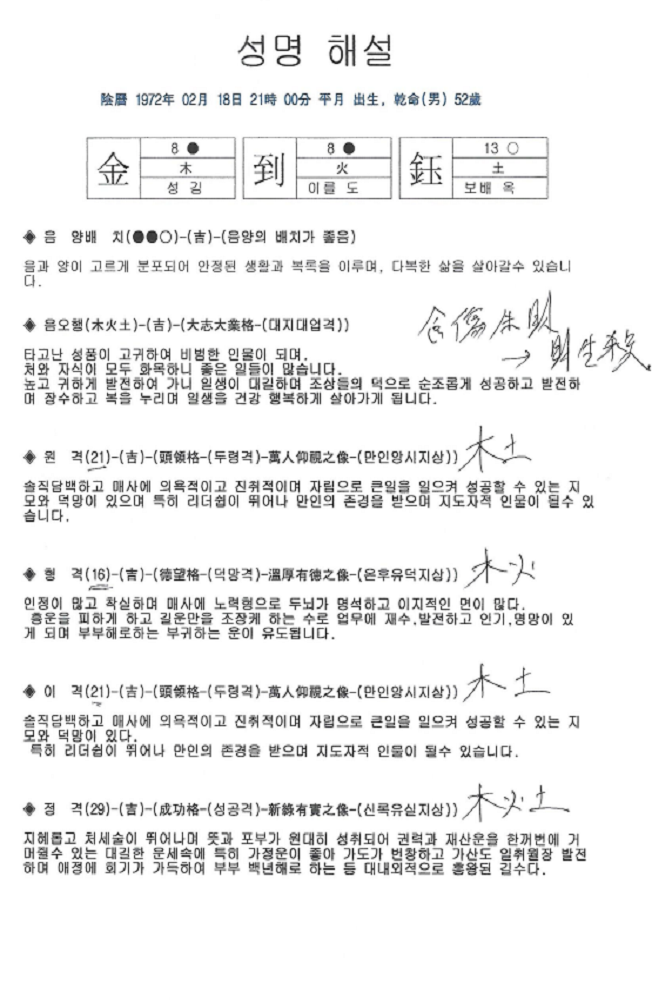 성명 해설
陰曆 1972年 02月 18日 21時 00分 平月 出生, 乾命(男) 52歲
金 8 ● 木 성 김
到 8 ● 火 이를 도
鈺 13 ○ 土 보배 옥
◈ 음 양배 치(●●○)-(吉)-(음양의 배치가 좋음)
음과 양이 고르게 분포되어 안정된 생활과 복록을 이루며, 다복한 삶을 살아갈수 있습니
다.
◈ 음오행(木火土)-(吉)-(大志大業格-(대지대업격))
타고난 성품이 고귀하여 비범한 인물이 되며,
처와 자식이 모두 화목하니 좋은 일들이 많습니다.
높고 귀하게 발전하여 가니 일생이 대길하며 조상들의 덕으로 순조롭게 성공하고 발전하
며 장수하고 복을 누리며 일생을 건강 행복하게 살아가게 됩니다.
→ 財生殺
◈ 원 격(21)-(吉)-(頭領格-(두령격)-萬人仰視之像-(만인앙시지상)) 木土
솔직담백하고 매사에 의욕적이고 진취적이며 자립으로 큰일을 일으켜 성공할 수 있는 지
모와 덕망이 있으며 특히 리더쉽이 뛰어나 만인의 존경을 받으며 지도자적 인물이 될수 있
습니다.
◈ 형 격(16)-(吉)-(德望格-(덕망격)-溫厚有德之像-(온후유덕지상)) 木火
인정이 많고 착실하며 매사에 노력형으로 두뇌가 명석하고 이지적인 면이 많다.
흉운을 피하게 하고 길운만을 조장케 하는 수로 업무에 재수,발전하고 인기,명망이 있
게 되며 부부해로하는 부귀하는 운이 유도됩니다.
◈ 이 격(21)-(吉)-(頭領格-(두령격)-萬人仰視之像-(만인앙시지상)) 木土
솔직담백하고 매사에 의욕적이고 진취적이며 자립으로 큰일을 일으켜 성공할 수 있는 지
모와 덕망이 있다.
특히 리더쉽이 뛰어나 만인의 존경을 받으며 지도자적 인물이 될수 있습니다.
◈ 정 격(29)-(吉)-(成功格-(성공격)-新綠有實之像-(신록유실지상)) 木火土
지혜롭고 처세술이 뛰어나며 뜻과 포부가 원대히 성취되어 권력과 재산운을 한꺼번에 거
머쥘수 있는 대길한 운세속에 특히 가정운이 좋아 가도가 번창하고 가산도 일취월장 발전
하며 애정에 희기가 가득하여 부부 백년해로 하는 등 대내외적으로 흥왕된 길수다.